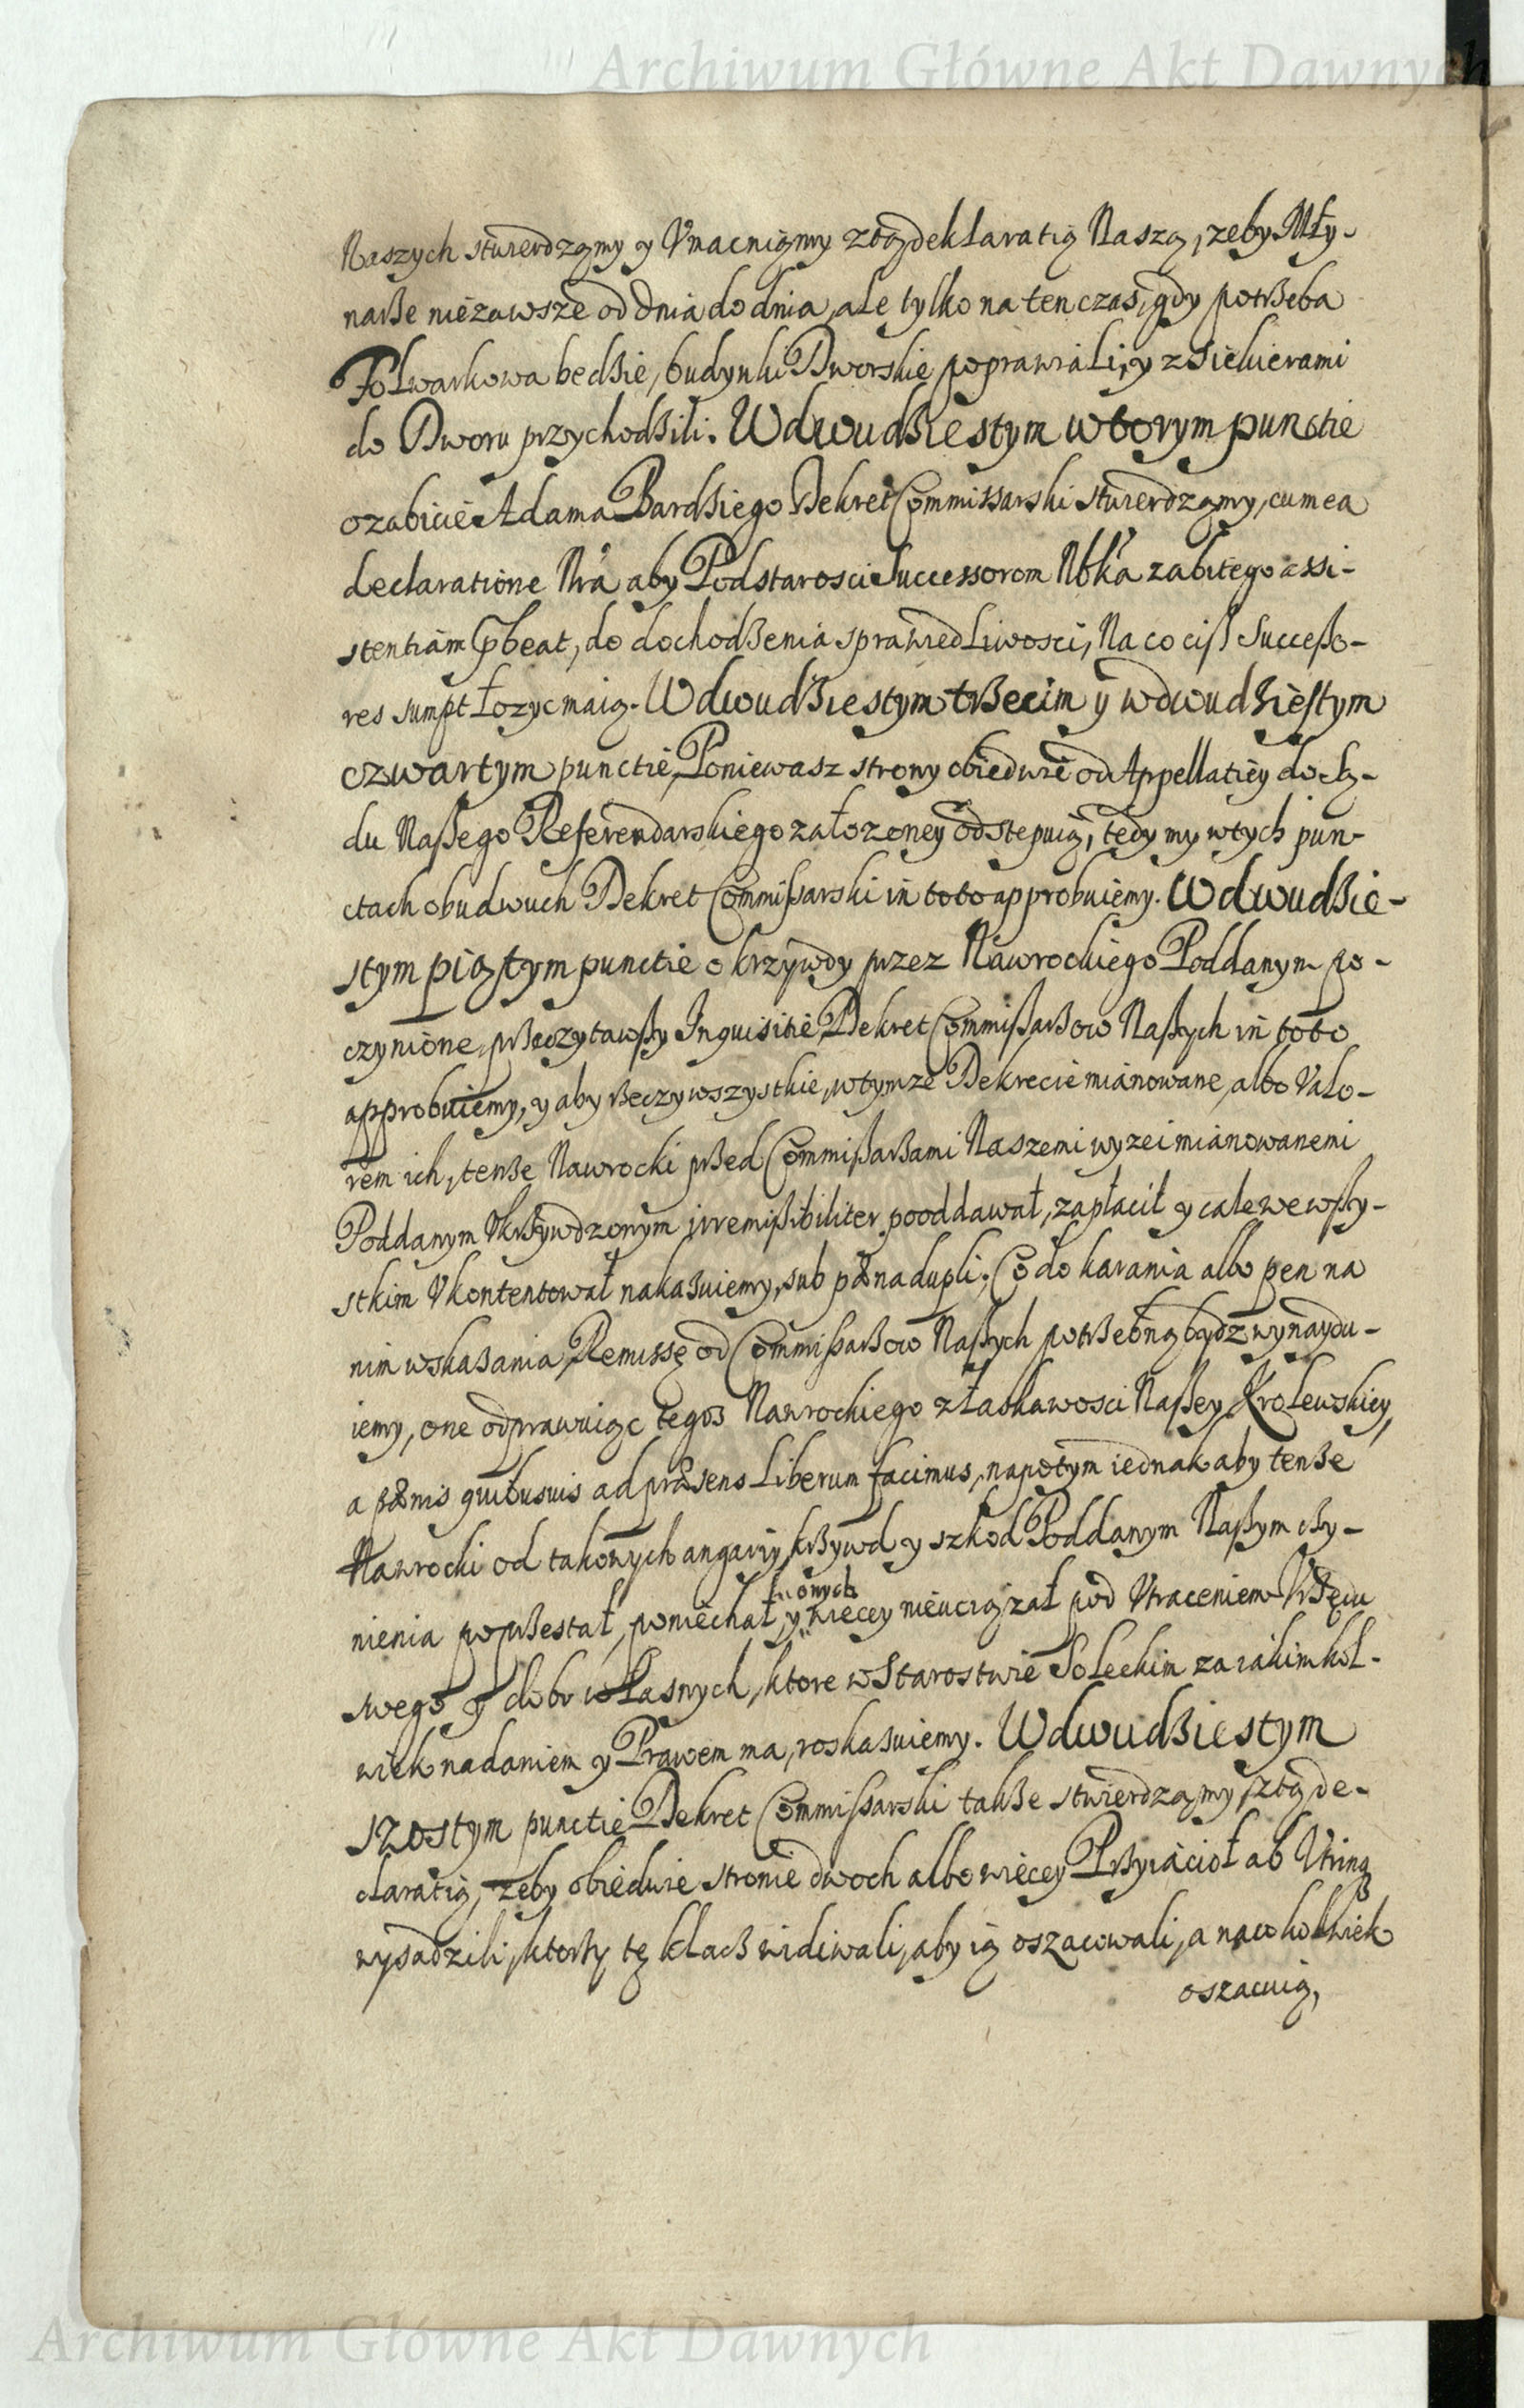 Archiwum Główne Akt Dawnych
Naszych stwierdzamy y Vmacniamy z tą deklaratią Naszą, zeby Mły-
narße nie zawsze od dnia do dnia, ale tylko na ten czas, gdy potrßeba
Folwarkowa bedßie, budynki Dworskie poprawiali, y z siekierami
do Dworu przychodßili. W dwudßiestym wtorym punctie
o zabicie Adama Bardßiego Dekret Commissarski stwierdzamy, cum ea
declaratione Nrã aby Podstarosci Successorom Nbka zabitego assi-
stentiam p̱beat, do dochodßenia sprawiedliwosci, Na co ciß Succeßo-
res sumpt łozyc maią. W dwudßiestym trßecim y w dwudßiestym
czwartym punctie, Poniewasz strony obiedwie od Appellatiey do Są-
du Naßego Referendarskiego załozoney odstepuią, tedy my w tych pun-
ctach obudwuch Dekret Commißarski in toto approbuiemy. W dwudßie-
stym piąstym punctie o krzywdy przez Nawrockiego Poddanym po-
czynione, prßeczytawßy Inquisitie Dekret Commißarßow Naßych in toto
approbuiemy, y aby rßeczy wszystkie, w tymze Dekrecie mianowane, albo Valo-
rem ich, tenße Nawrocki prßed Commißarßami Naszemi wyzei mianowanemi
Poddanym Vkrßywdzonym irremißibiliter pooddawał, zapłacił y cale we wßy-
stkim Vkontentował nakaßuiemy, sub pæna dupli. Co do karania albo pen na
nim wskaßania, Remissę od Commißarßow Naßych potrßebną bydz wynaydu-
iemy, one odprawuiąc tegoß Nawrockiego z łaskawosci Naßey Krolewskiey,
a pænis quibusuis ad præsens liberum facimus, napotym iednak aby tenße
Nawrocki od takowych angariy, krßywd y szkod Poddanym Naßym cßy-
nienia poprßestał, poniechał, y onych wiecey nieuciązał pod Vtraceniem Vrßędu
swego y dobr własnych, ktore w Starostwie Soleckim za iakimkol-
wiek nadaniem y Prawem ma, roskaßuiemy. W dwudßiestym
szostym punctie Dekret Commißarski takße stwierdzamy, z tą de-
claratią, zeby obiedwie stronie dwoch albo więcey Prßyiacioł ab Vtrinq
wysadzili, ktorßy tę klacß widiwali, aby ią oszacowali, a na co kolwiek
oszacuią,
Archiwum Główne Akt Dawnych